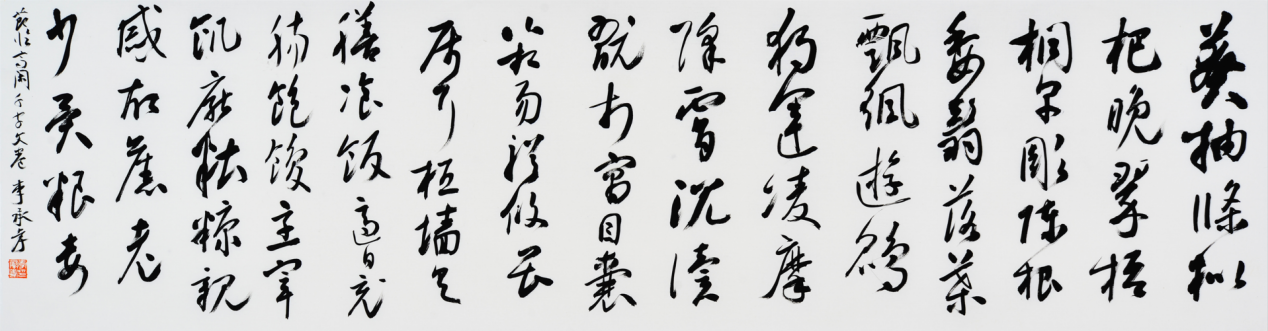 莽抽條枇
杷晚翠梧
桐早彫陳根
委翳落葉
飄颻遊鵾
獨運凌摩
絳霄耽讀
翫市寓目囊
箱易輶攸畏
属耳垣墙具
膳飡飯適口充
腸飽飫烹宰
飢厭糟糠親
戚故舊老
少異糧妾
節臨高閑千字文卷 李永